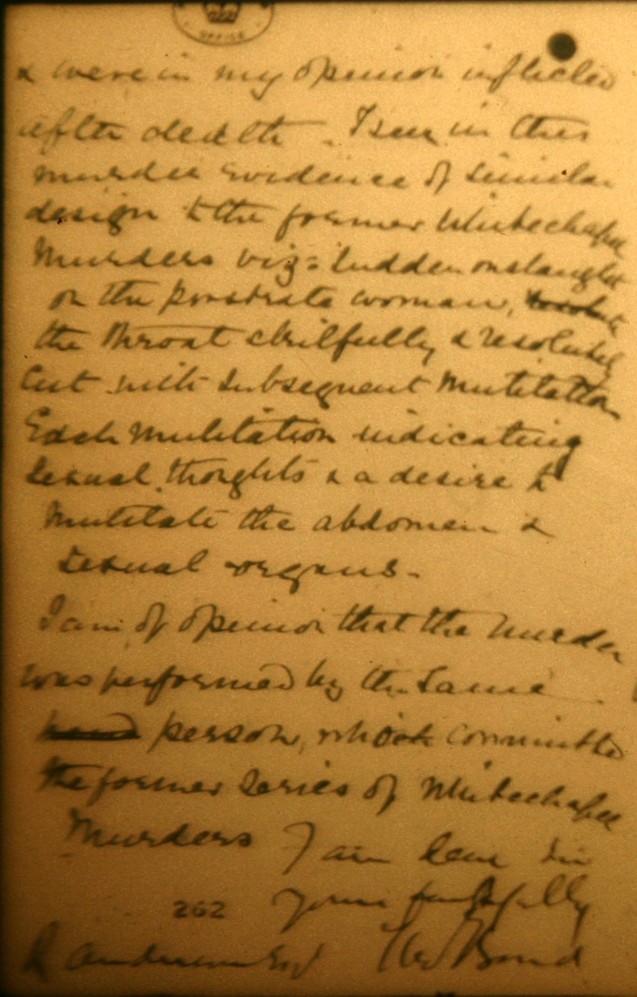 OFFICE
& were in my opinion inflicted
after death. I see in this
murder evidence of similar
design to the former Whitechapel
Murders viz: sudden onslaught
on the prostrate woman,
the throat skilfully & resolutely
cut with subsequent mutilation
Each mutilation indicating
sexual thoughts & a desire to
mutilate the abdomen &
sexual organs.
I am of opinion that the murder
was performed by the same
hand person, who committed
the former series of Whitechapel
Murders I am dear Sir
262 Yours faithfully
R Anderson Esq Thos Bond